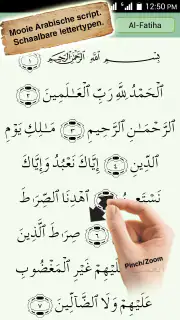 12:50 PM
Mooie Arabische script.
Schaalbare lettertypen.
Al-Fatiha
بِسْمِ اللَّهِ الرَّحْمَٰنِ الرَّحِيمِ ١
الْحَمْدُ لِلَّهِ رَبِّ الْعَالَمِينَ ٢
الرَّحْمَٰنِ الرَّحِيمِ ٣ مَالِكِ يَوْمِ
الدِّينِ ٤ إِيَّاكَ نَعْبُدُ وَإِيَّاكَ
نَسْتَعِينُ ٥ اهْدِنَا الصِّرَاطَ
٦ صِرَاطَ الَّذِينَ
عَلَيْهِمْ غَيْرِ الْمَغْضُوبِ
Pinch/Zoom
عَلَيْهِمْ وَلَا الضَّالِّينَ ٧